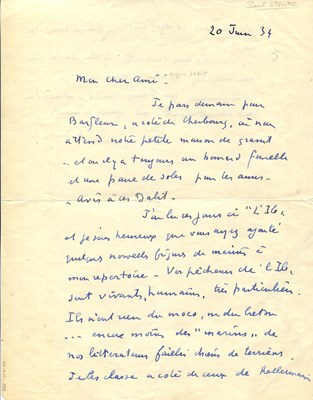 20 Juin 34
5
Mon cher ami -
Je pars demain pour
Barfleur, à côté de Cherbourg, où nous
attend notre petite maison de granit
- et où il y a toujours un homard fidèle
et une paire de soles pour les amis -
- Avis à ces
J'ai lu ces jours ci "L'Ile",
et je suis heureux que vous ayez ajouté
quelques nouvelles figures de marins à
mon repertoire - Vos pêcheurs de l'Ile
sont vivants, humains, très particuliers.
Ils n'ont rien du moco, ni du breton
... encore moins des "marins" de
nos littérateurs faillis chiens de terriens.
Je les classe à côté de ceux de Kellermann